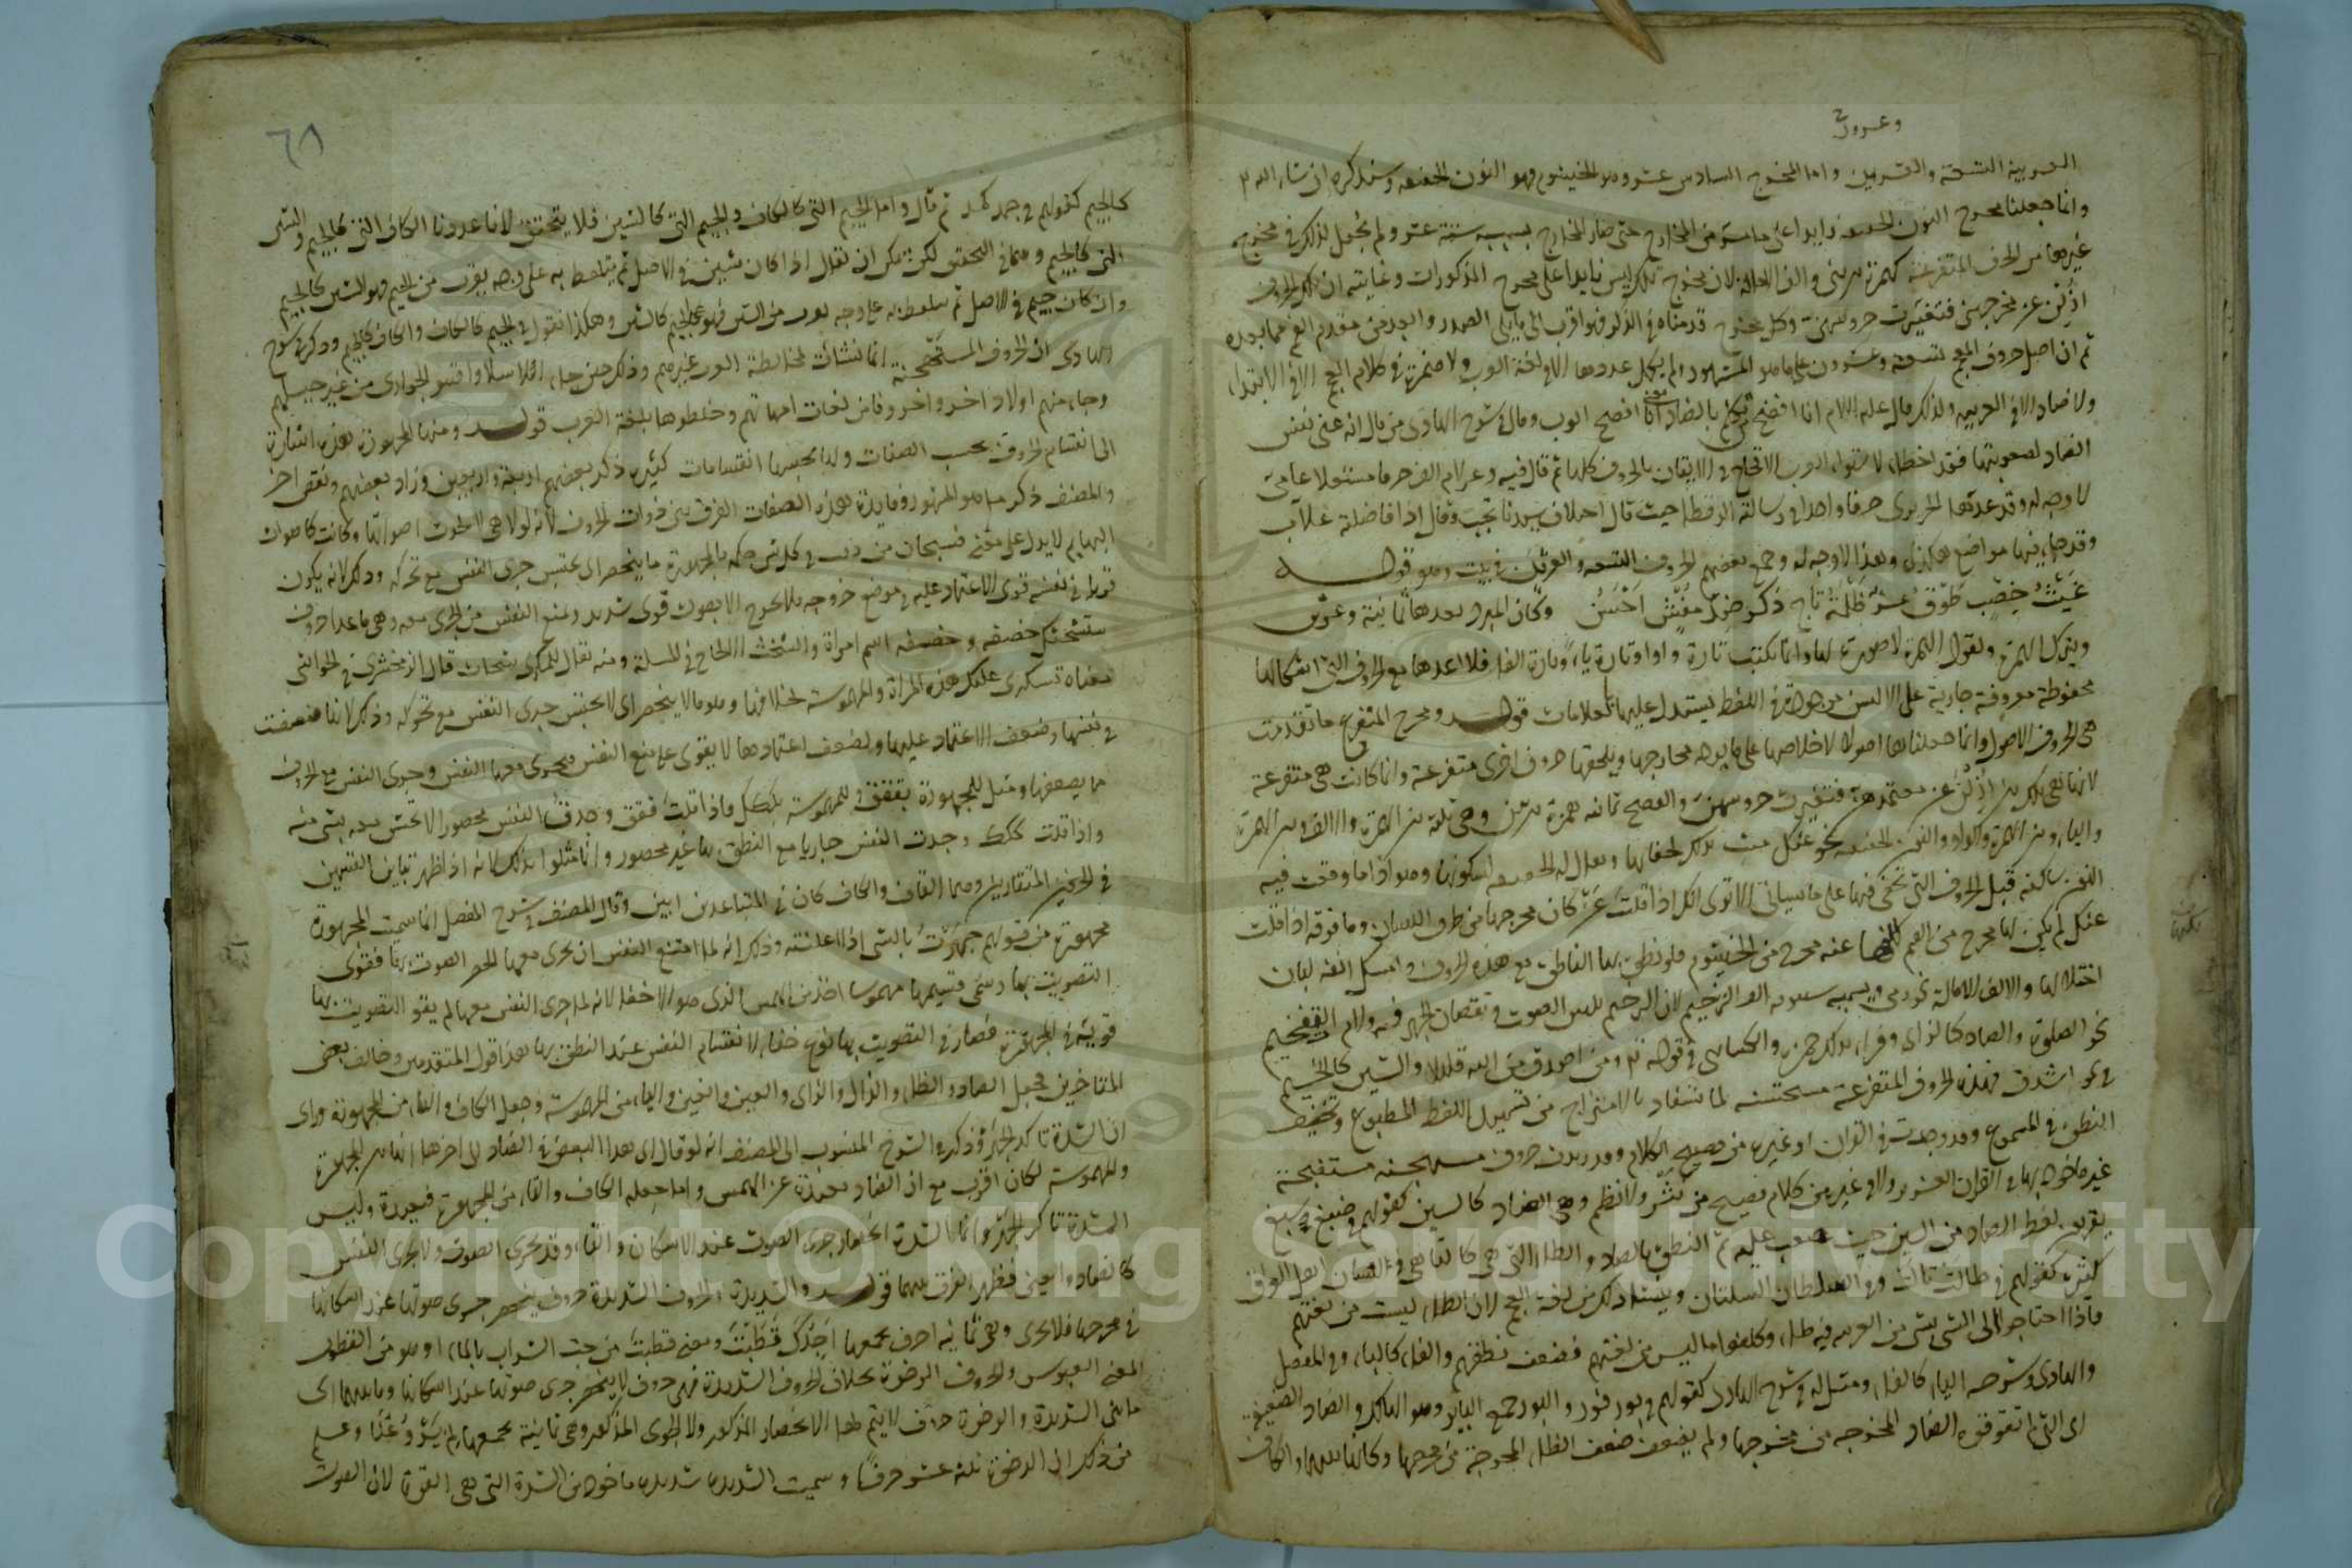 وعشرون
العربية التسعة والعشرين واما المخرج السادس عشر وهو الخيشوم فهو النون الخفيفة وسنذكره ان شاء الله
وانما جعلنا مخرج النون الخفيفة زايدا على خمسة عشر من المخارج حتى صار المخارج بسببه ستة عشر ولم يجعل لذلك في مخرج
غيرها من الحرف المتفرعة كهمزة بين بين والف الامالة لان مخرج تلك ليس زايدا على مخرج المذكورات وغايته ان تلك الحروف
ازيلن عن مخرجهن فتغيرت جروسهن وكل مخرج قدمناه في الذكر فهو اقرب الى ما يلي الصدر وابعد من مقدم الفم مما بعده
ثم ان اصل حروف المعجم تسعة وعشرون على ما هو المشهور ولم يكمل عددها الا في لغة العرب ولا همزة في كلام العجم الا في الابتداء
ولا ضاد الا في العربية ولذلك قال عليه السلام انا افصح من تكلم بالضاد يعني انا افصح العرب وقال في شرح الهادي من قال انه عنى نفس
الضاد لصعوبتها فقد اخطاء لاستواء العرب الاقحاح في الاتيان بالحروف كلها ثم قال فيه وعد لام الف حرفا مستقلا عامي
لا وجه له وقد عدها الحريري حرفا واحدا في رسالته الرقطاء حيث قال اخلاق سيدنا تحب وقال اذا فاضلة غلاب
وقد جاء فيها مواضع هكذا وهذا لا وجه له وجمع بعضهم الحروف التسعة والعشرين في بيت وهو قوله
غيث خصب طوق عز ظلة تاج ذكر ضد مفش احسن وكان المبرد يعدها ثمانية وعشرين
ويترك الهمزة ويقول الهمزة لا صورة لها وانما تكتب تارة واوا وتارة ياء وتارة الفا فلا اعدها مع الحروف التي اشكالها
محفوظة معروفة جارية على الالسن موجودة في اللفظ يستدل عليها بالعلامات قوله ومخرج المتفرع ما تقدمت
هي الحروف الاصول وانما جعلناها اصولا لاخلاصها على ما يوجبه مخارجها ويلحقها حروف اخرى متفرعة وانما كانت هي متفرعة
لانها هي تلك بين ازلن عن معتمدهن فتغيرت جروسهن والفصيح ثمانية همزة بين بين وهي ثلثة بين الهمزة والالف وبين الهمزة
والياء وبين الهمزة والواو والنون الخفيفة نحو عنك سميت بذلك لخفائها ويقال له الخفيفة لسكونها وهو اذا ما وقعت فيه
النون ساكنة قبل الحروف التي تخفى فيها على ما سيأتي الا ترى انك اذا قلت عن كان مخرجها من طرف اللسان وما فوقه اذا قلت
عنك لم يكن لها مخرج من الفم لكنها غنة تخرج من الخيشوم فلو نطق بها الناطق مع هذه الحروف وامسك انفه لبان
اختلالها والالف الامالة نحو رمى ويسميه سيبويه الف الترخيم لان الترخيم تليين الصوت ونقصان الجهر فيه ولام التفخيم
نحو الصلوة والصاد كالزاي وقراء بذلك حمزة والكسائي في قوله تع ومن اصدق من الله قيلا والشين كالجيم
في نحو اشدق فهذه الحروف المتفرعة مستحسنة لما يستفاد بالامتزاج من تسهيل اللفظ المطبوع وتخفيف
النطق في المسموع وقد وجدت في القران او غيره من فصيح الكلام وقد وردت حروف مستهجنة مستقبحة
غير ماخوذ بها في القران العزيز ولا في غيره من كلام فصيح من نثر ولا نظم وهي الصاد كالسين كقولهم في صبغ سبغ
يقرب لفظ الصاد من السين حيث صعب عليه ثم النطق بالصاد والطاء التي هي كالتاء هي في لسان اهل العراق
كثيرة كقولهم في طالت تالت وفي السلطان السلتان وينشا ذلك من لغة العجم لان الطاء ليست من لغتهم
فاذا احتاجوا الى النطق بشيء من العربية فيه طاء وكلفوا ما ليس من لغتهم فضعف نطقهم والفاء كالباء وفي المفصل
والهادي وشرحه الباء كالفاء ومثل له في شرح الهادي كقولهم في بور فور والبور جمع البائر وهو الهالك والضاد الضعيفة
اي التي لم تقو قوة الضاد المخرجة من مخرجها ولم يضعف ضعف الظاء المخرجة من مخرجها وكانها بينهما والكاف
٦٨
كالجيم كقولهم في جمل كمل ثم قال واما الجيم التي كالكاف والجيم التي كالشين فلا يتحقق لانا عددنا الكاف التي كالجيم والشين
التي كالجيم وهما في التحقق لكن يمكن ان يقال اذا كان شين في الاصل ثم يتلفظ به على وجه يقرب من الجيم فهو الشين كالجيم
وان كان جيم في الاصل ثم يتلفظ به على وجه يقرب من الشين فهو الجيم كالشين وهكذا نقول في الجيم كالكاف والكاف كالجيم وذكر في شرح
الهادي ان الحروف المستهجنة انما نشأت لمخالطة العرب غيرهم وذلك حين جاء الاسلام واقتنو الجواري من غير جيلهم
وجاء منهم اولاد اخر واخروفا من لغات امهاتهم وخلطوها بلغة العرب قوله ومنها المجهورة هذه اشارة
الى انقسام الحروف بحسب الصفات ولها بحسبها انقسامات كثيرة ذكر بعضهم اربعة واربعين وزاد بعضهم ونقص اخر
والمصنف ذكر ما هو المشهور وفايدة هذه الصفات الفرق بين ذوات الحروف لانه لولا هي لاتحدت اصواتها وكانت كاصوات
البهايم لا يدل على معنى فسبحان من دقت في كل شيء حكمه فالمجهورة ما ينحصر اي يحتبس جري النفس مع تحركه وذلك لانه يكون
قويا في نفسه قوي الاعتماد عليه في موضع خروجه فلا يخرج الا بصوت قوي شديد ويمنع النفس من الجري معه وهي ما عدا حروف
ستشحثك خصفه وخصفه اسم امراة والشحث الالحاح في المسلة ومنه يقال للمكدي شحاث قال الزمخشري في الحواشي
معناه تستكدي عليك هذه المراة والمهموسة بخلافها وهو ما لا ينحصر اي لا يحتبس جري النفس مع تحركه وذلك لانها ضعفت
في نفسها وضعف الاعتماد عليها ولضعف اعتمادها لا يقوى على منع النفس فيجري معها النفس وجري النفس مع الحروف
مما يضعفها ومثل للمجهورة بققق وللمهموسة بككك فاذا قلت ققق وجدت النفس محصورا لا تحس معه بشيء منه
واذا قلت ككك وجدت النفس جاريا مع النطق بها غير محصور وانما مثلوا بذلك لانه اذا ظهر تباين القسمين
في الحرفين المتقاربين وهما القاف والكاف كان في المتباعدين ابين وقال المصنف في شرح المفصل انما سميت المجهورة
مجهورة من قولهم جهرت بالشي اذا اعلنته وذلك انه لما امتنع النفس ان يجري معها انحصر الصوت بها فقوى
التصويت بها وسمي قسيمها مهموسا اخذ من الهمس الذي هو الاخفاء لانه لما جرى النفس معها لم يقو التصويت بها
قويته في المجهورة فصار في التصويت بها نوع خفاء لانقسام النفس عند النطق بها هذا قول المتقدمين وخالف بعض
المتاخرين فجعل الضاد والظاء والذال والزاي والعين والغين والياء من المهموسة وجعل الكاف والتاء من المجهورة وراى
ان الشدة تاكد الجهر وذكر في الشرح المنسوب الى المصنف انه لو قال اي هذا البعض في الضاد الى اخرها انها بين المجهورة
والمهموسة لكان اقرب مع ان الضاد بعيدة عن الهمس واما جعله الكاف والتاء من المجهورة فبعيدة وليس
الشدة تاكد الجهر وانما الشدة انحصار جري الصوت عند الاسكان والتاء وقد يجري الصوت ولا يجري النفس
كالضاد والعين فظهر الفرق بينهما قوله والشديدة الحروف الشديدة حروف ينحصر جري صوتها عند اسكانها
في مخرجها فلا يجري وهي ثمانية احرف يجمعها اجدك قطبت ومعنى قطبت مزجت الشراب بالماء او هو من القطوب
المعنى العبوس والحروف الرخوة بخلاف الحروف الشديدة فهي حروف لا ينحصر جري صوتها عند اسكانها وما بينهما اي
ما بين الشديدة والرخوة حروف لا يتم لها الانحصار المذكور ولا الجري المذكور وهي ثمانية يجمعها لم يروعنا وعلم
من ذلك ان الرخوة ثلثة عشر حرفا وسميت الشديدة شديدة ماخوذ من الشدة التي هي القوة لان الصوت
Copyright © King Saud University